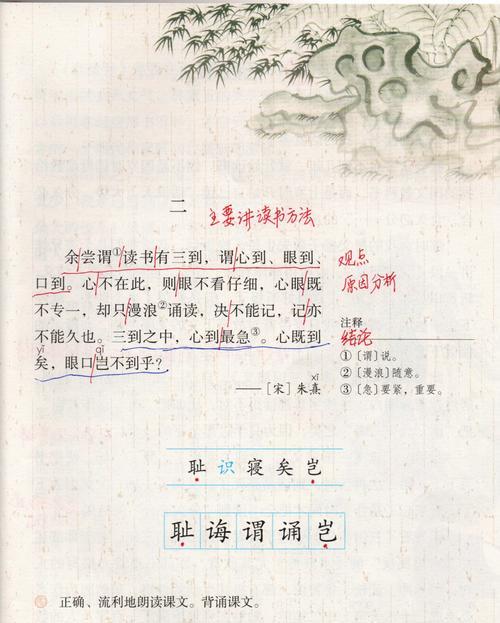 二
主要讲读书方法
余尝谓①读书有三到,谓心到、眼到、
观点
口到。心不在此,则眼不看仔细,心眼既
原因分析
不专一,却只漫浪②诵读,决不能记,记亦
不能久也。三到之中,心到最急③。心既到
yǐ qǐ
矣,眼口岂不到乎?
xī
——[宋]朱熹
注释
结论
①〔谓〕说。
②〔漫浪〕随意。
③〔急〕要紧,重要。
耻 识 寝 矣 岂
耻 诲 谓 诵 岂
正确、流利地朗读课文。背诵课文。